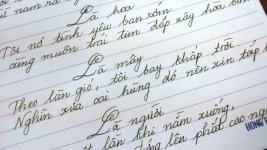 Là hoa
Tôi nở tình yêu ban sớm
cùng muôn trái tim đắp xây hòa
Là mây
Theo làn gió, tôi bay khắp trời
Nghìn xưa oai hùng đó nên xin tiếp
Là người
lần khi nằm xuống,
lên phất cao
HONG